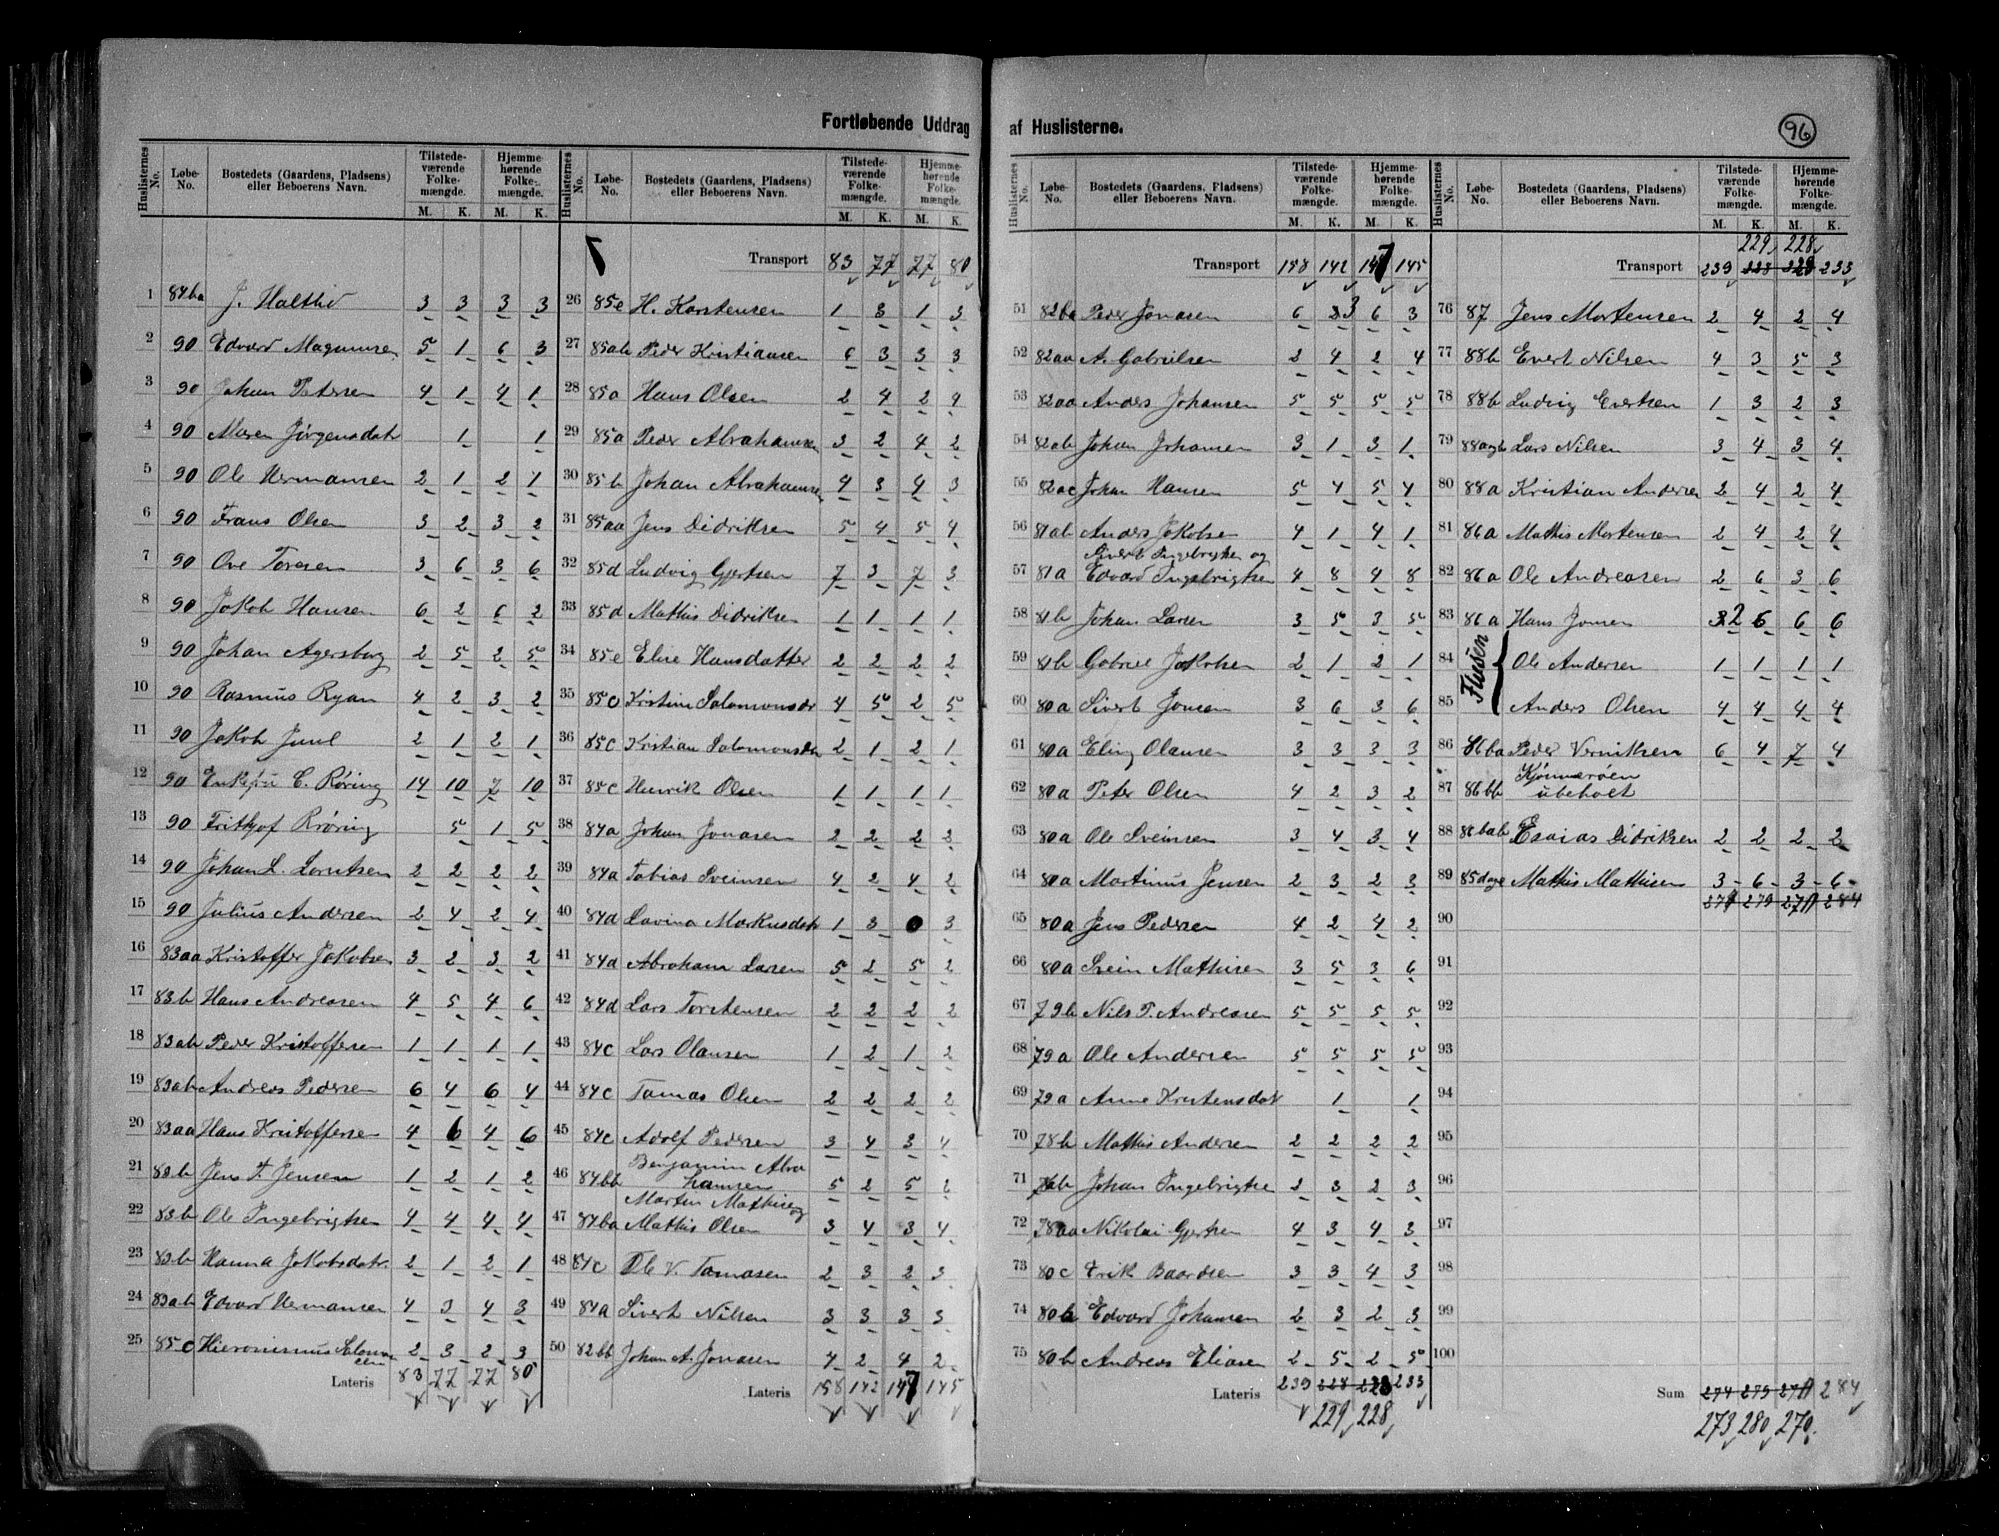 Fortløbende Uddrag af Huslisterne.
96
Huslisternes No. Løbe-No. Bostedets (Gaardens, Pladsens) eller Beboerens Navn. Tilstedeværende Folkemængde. M. K. Hjemmehørende Folkemængde. M. K.
1 84ba J. Holthe 3 3 3 3
2 90 Edvard Magnussen 5 1 6 3
3 90 Johan Petersen 4 1 4 1
4 90 Maren Jørgensdatr 1 1
5 90 Ole Hermansen 2 1 2 1
6 90 Frans Olsen 3 2 3 2
7 90 Ove Toresen 3 6 3 6
8 90 Jakob Hansen 6 2 6 2
9 90 Johan Agersborg 2 5 2 5
10 90 Rasmus Ryan 4 2 3 2
11 90 Jakob Juul 2 1 2 1
12 90 Enkefru C. Røring 14 10 7 10
13 90 Frithjof Røring 5 1 5
14 90 Johan L. Lorntsen 2 2 2 2
15 90 Julius Andersen 2 4 2 4
16 83aa Kristoffer Jakobsen 3 2 3 2
17 83b Hans Andreasen 4 5 4 6
18 83ab Peder Kristoffersen 1 1 1 1
19 83ab Andreas Pedersen 6 4 6 4
20 83aa Hans Kristoffersen 4 6 4 6
21 83b Jens F. Jensen 1 2 1 2
22 83b Ole Ingebrigtsen 4 4 4 4
23 83b Hanna Jakobsdatr. 2 1 2 1
24 83ab Edvard Hermansen 4 3 4 3
25 85c Hieronimus Salomonsen 2 3 2 3
Lateris 83 77 77 80
Huslisternes No. Løbe-No. Bostedets (Gaardens, Pladsens) eller Beboerens Navn. Tilstedeværende Folkemængde. M. K. Hjemmehørende Folkemængde. M. K.
Transport 83 77 77 80
26 85e H. Karstensen 1 3 1 3
27 85ab Peder Kristiansen 6 3 3 3
28 85a Hans Olsen 2 4 2 4
29 85a Peder Abrahamsen 3 2 4 2
30 85b Johan Abrahamsen 4 3 4 3
31 85aa Jens Didriksen 5 4 5 4
32 85d Ludvig Gjertsen 7 3 7 3
33 85d Mathis Didriksen 1 1 1 1
34 85e Elise Hansdatter 2 2 2 2
35 85c Kristine Salomonsdr 4 5 2 5
36 85c Kristian Salomonsen 2 1 2 1
37 85c Henrik Olsen 1 1 1 1
38 84a Johan Jonasen 2 2 2 2
39 84a Tobias Sveinsen 4 2 4 2
40 84d Lavina Markusdatr 1 3 0 3
41 84d Abraham Larsen 5 2 5 2
42 84d Lars Torstensen 2 2 2 2
43 84c Lars Olausen 1 2 1 2
44 84c Tomas Olsen 2 2 2 2
45 84c Adolf Pedersen 3 4 3 4
46 84bb Benjamin Abrahamsen 5 2 5 2
47 84ba Martin Mathis og Mathis Olsen 3 4 3 4
48 84c Ole V. Tomasen 2 3 2 3
49 84a Sivert Nilsen 3 3 3 3
50 82bb Johan A. Jonasen 4 2 4 2
Lateris 158 142 147 145
Huslisternes No. Løbe-No. Bostedets (Gaardens, Pladsens) eller Beboerens Navn. Tilstedeværende Folkemængde. M. K. Hjemmehørende Folkemængde. M. K.
Transport 158 142 147 145
51 82ba Peder Jonasen 6 3 6 3
52 82aa A. Gabrielsen 2 4 2 4
53 82aa Anders Johansen 5 5 5 5
54 82ab Johan Johansen 3 1 3 1
55 82ac Johan Hansen 5 4 5 4
56 81ab Anders Jakobsen 4 1 4 1
57 81a Sivert Ingebrigtsen og Edvard Ingebrigtsen 4 8 4 8
58 81b Johan Larsen 3 5 3 5
59 81b Gabriel Jakobsen 2 1 2 1
60 80a Sivert Jonsen 3 6 3 6
61 80a Eling Olausen 3 3 3 3
62 80a Peter Olsen 4 2 3 2
63 80a Ole Sveinsen 3 4 3 4
64 80a Martinus Jensen 2 3 2 3
65 80a Jens Pedersen 4 2 4 2
66 80a Svein Mathisen 3 5 3 6
67 79b Nils P. Andreasen 5 5 5 5
68 79a Ole Andersen 5 5 5 5
69 79a Anne Kristensdat 1 1
70 78b Mathis Andersen 2 2 2 2
71 78ab Johan Ingebrigtsen 2 3 2 3
72 78aa Nikolai Gjertsen 4 3 4 3
73 80c Erik Baardsen 3 3 4 3
74 80b Edvard Johansen 2 3 2 3
75 80b Andreas Eliasen 2 5 2 5
Lateris 239 228 228 233
229 228
Huslisternes No. Løbe-No. Bostedets (Gaardens, Pladsens) eller Beboerens Navn. Tilstedeværende Folkemængde. M. K. Hjemmehørende Folkemængde. M. K.
229 228
Transport 239 228 229 233
76 87 Jens Mortensen 2 4 2 4
77 88b Evert Nilsen 4 3 5 3
78 88b Ludvig Evertsen 1 3 2 3
79 88agb Lars Nilsen 3 4 3 4
80 88a Kristian Andersen 2 4 2 4
81 86a Mathis Mortensen 2 4 2 4
82 86a Ole Andreasen 2 6 3 6
83 86a Hans Jonsen 3 2 6 6 6
Flusen
84 Ole Andersen 1 1 1 1
85 Anders Olsen 4 4 4 4
86 86ba Peder Verniksen 6 4 7 4
87 86bb Kjønnerøen ubeboet
88 86bab Esaias Didriksen 2 2 2 2
89 85dage Mathis Mathisen 3 6 3 6
274 279 271 284
90
91
92
93
94
95
96
97
98
99
100
Sum 274 279 271 284
273 280 270